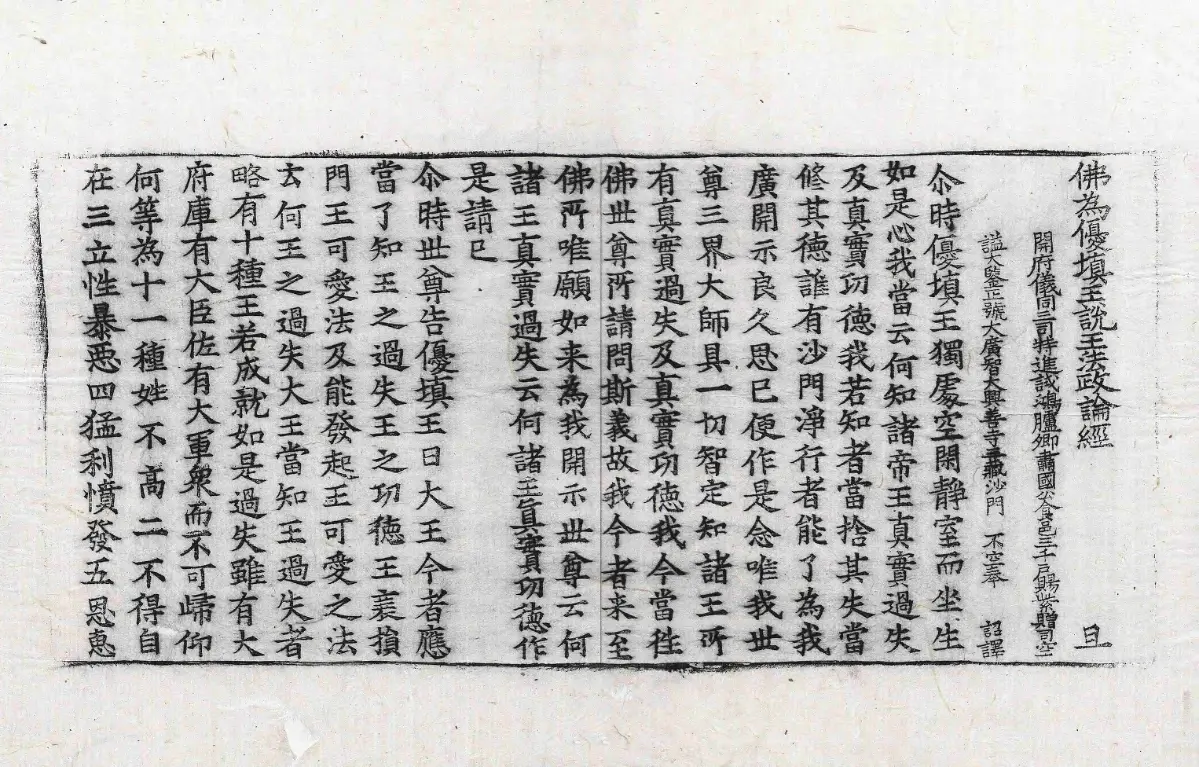 佛為優填王說王法政論經 旦
開府儀同三司特進試鴻臚卿肅國公食邑三千戶賜紫贈司空
諡大鑒正號大廣智大興善寺三藏沙門 不空奉 詔譯
尒時優填王獨處空閑靜室而坐生
如是心我當云何知諸帝王真實過失
及真實功德我若知者當捨其失當
修其德誰有沙門淨行者能了為我
廣開示良久思已便作是念唯我世
尊三界大師具一切智定知諸王所
有真實過失及真實功德我今當往
佛世尊所請問斯義故我今者来至
佛所唯願如来為我開示世尊云何
諸王真實過失云何諸王真實功德作
是請已
尒時世尊告優填王曰大王今者應
當了知王之過失王之功德王衰損
門王可愛法及能發起王可愛之法
云何王之過失大王當知王過失者
略有十種王若成就如是過失雖有大
府庫有大臣佐有大軍衆而不可歸仰
何等為十一種姓不高二不得自
在三立性暴惡四猛利憤發五恩惠